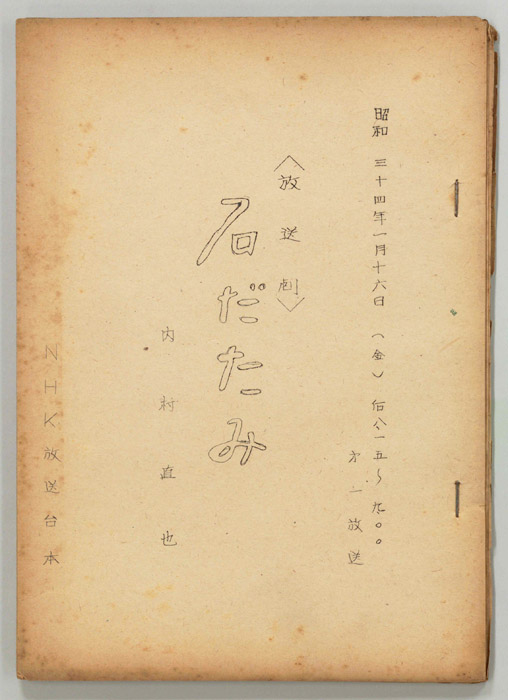 昭和三十四年一月十六日(金)后八・一五~九・〇〇
第一放送
〈放送劇〉
石だたみ
内村直也
NHK放送台本